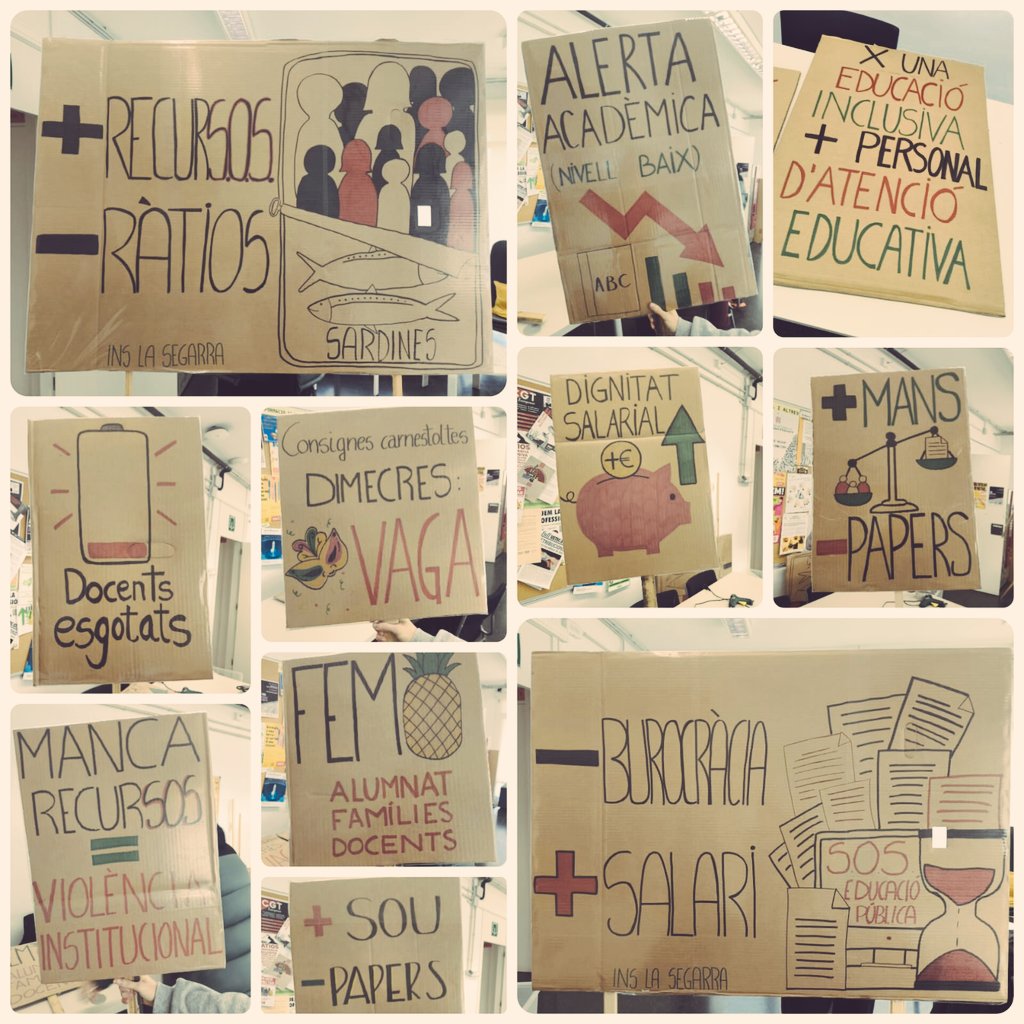 + RECURS.O.S.
- RÀTIOS
SARDINES
INS LA SEGARRA
ALERTA
ACADÈMICA
(NIVELL BAIX)
ABC
X UNA
EDUCACIÓ
INCLUSIVA
+ PERSONAL
D'ATENCIÓ
EDUCATIVA
Docents
esgotats
Consignes carnestoltes
DIMECRES:
VAGA
CGT
DIGNITAT
SALARIAL
+€
+ MANS
- PAPERS
MANCA
RECURSOS
=
VIOLÈNCIA
INSTITUCIONAL
FEM
ALUMNAT
FAMÍLIES
DOCENTS
CGT
+ SOU
- PAPERS
- BUROCRÀCIA
+ SALARI
S.O.S
EDUCACIÓ
PÚBLICA
INS LA SEGARRA